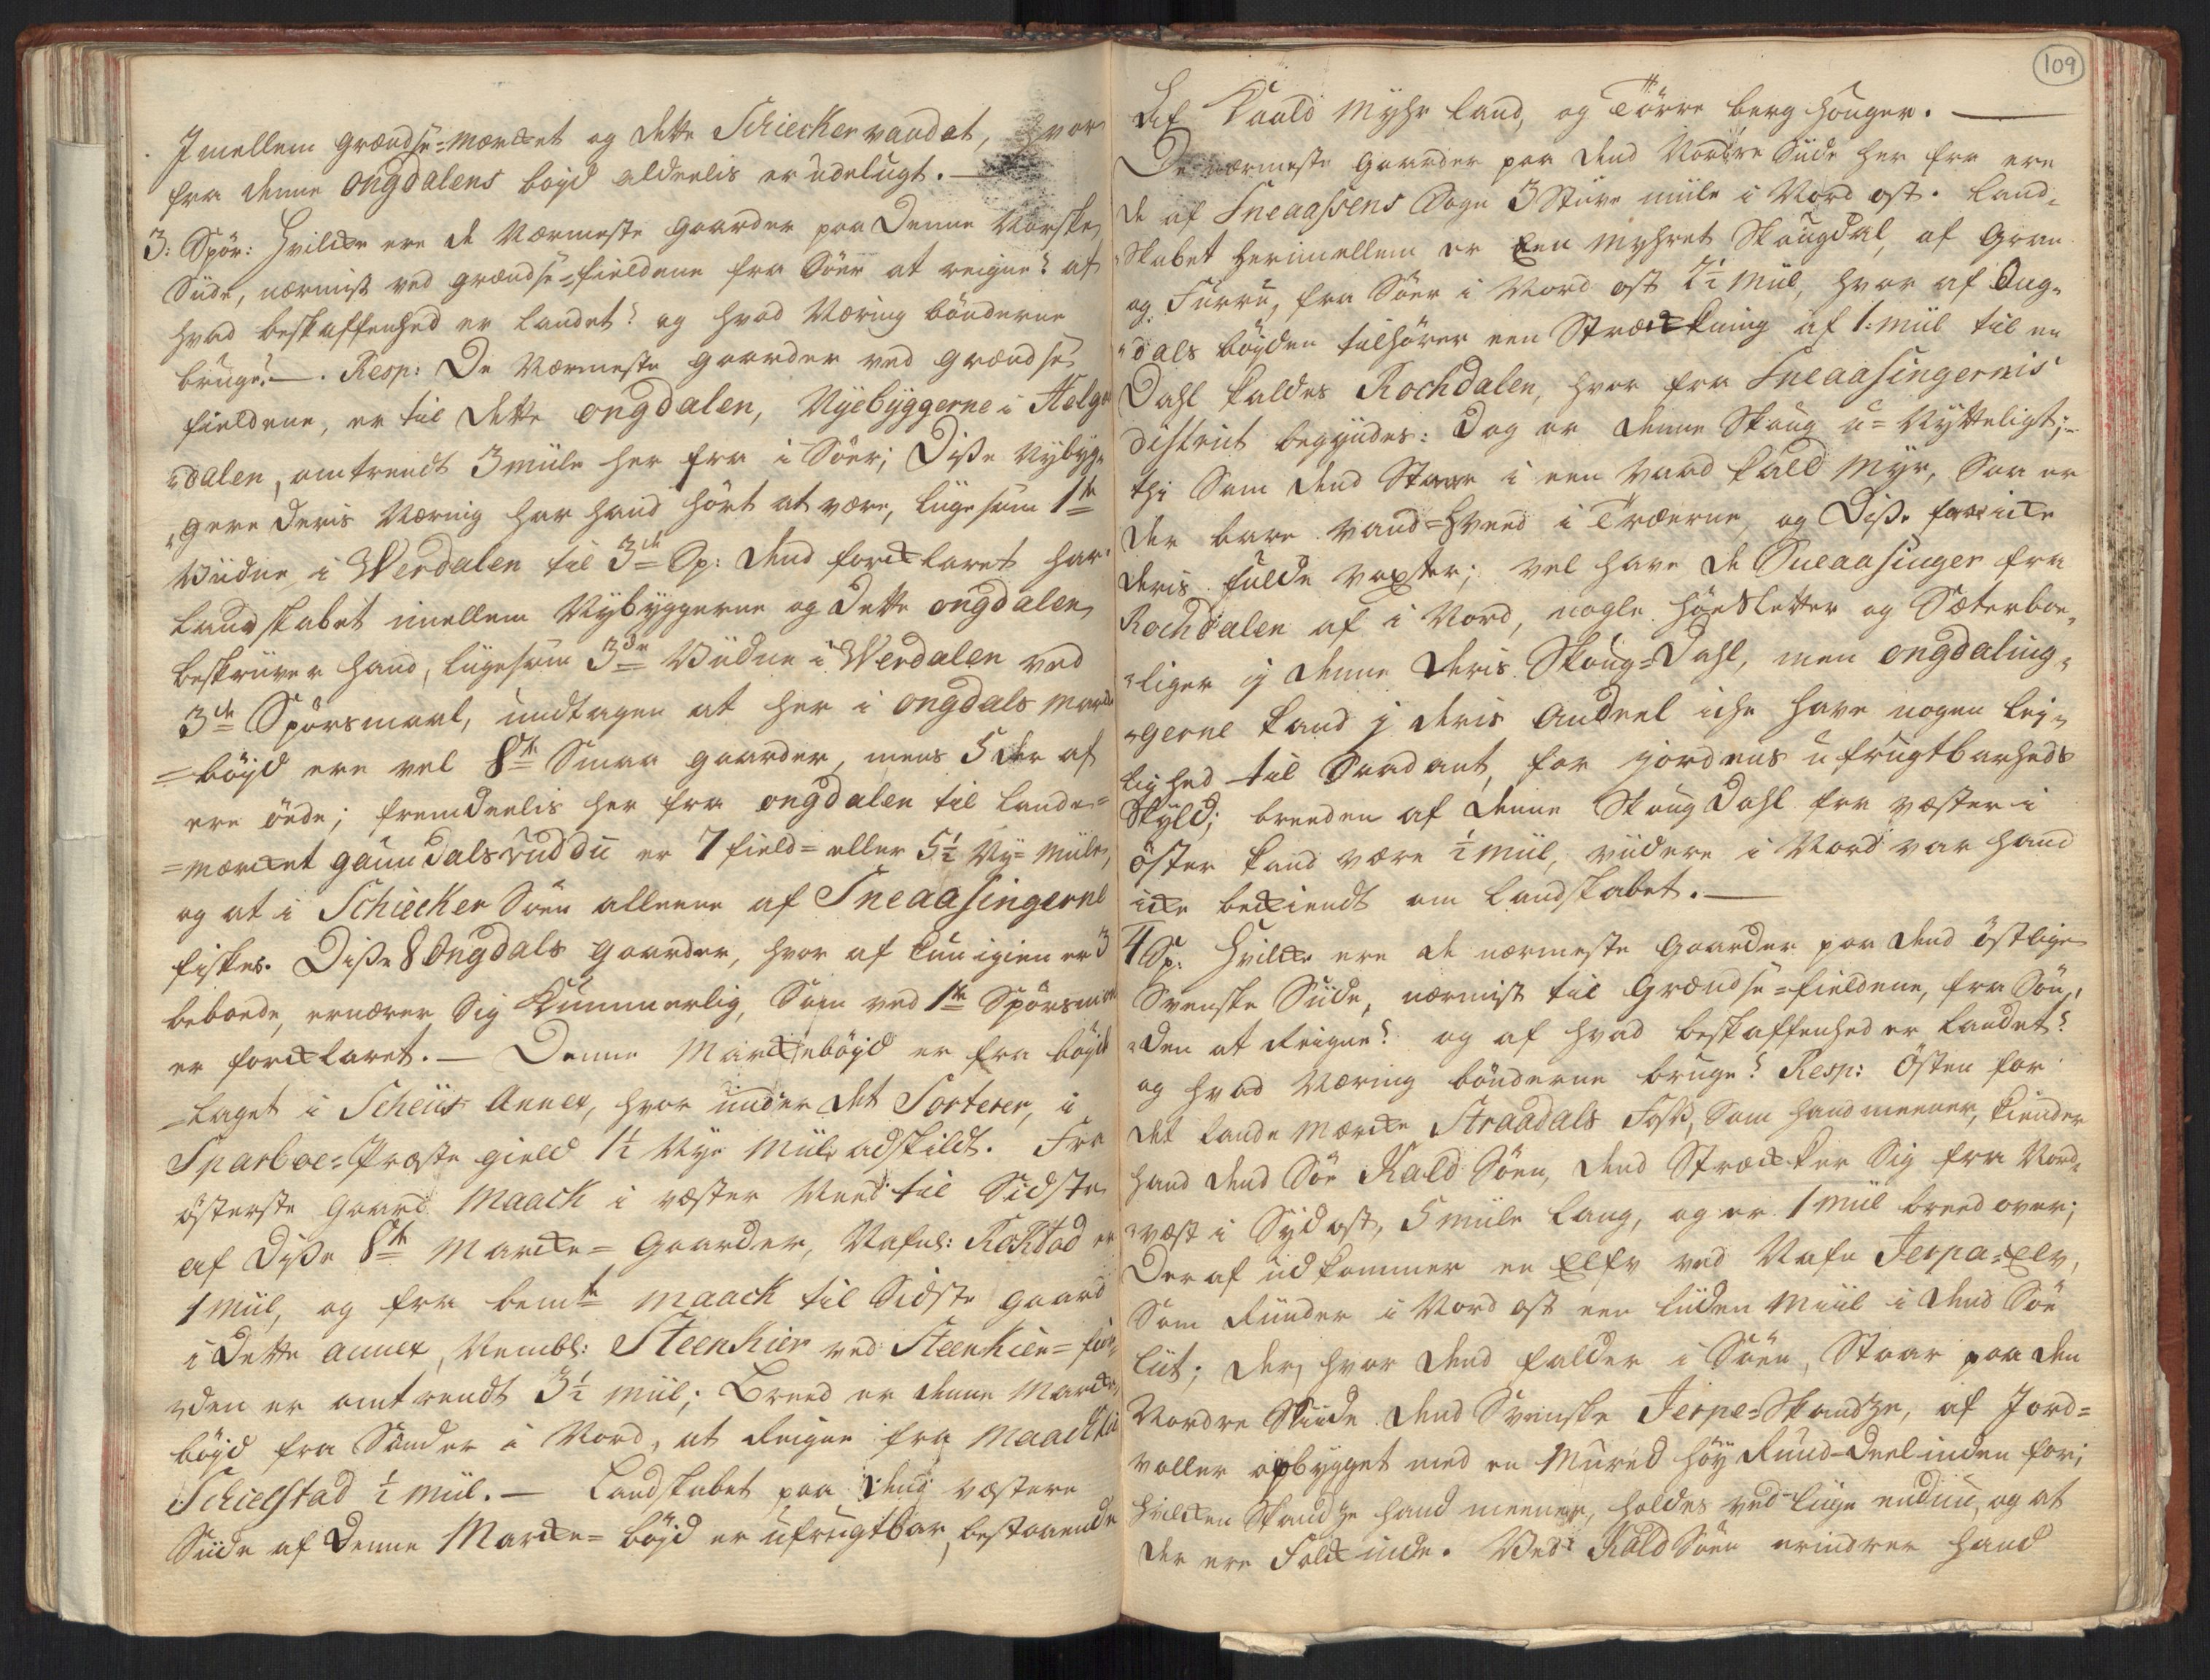 Jmellem grændse=mærcket og dette Schiecker vandet, hvor
fra denne ongdalens bøyd aldeelis er udelugt. —
3: Spör: Hvilcke ere de Nærmeste gaarder paa Denne Norske
Siide, nærmist ved grændse=fieldene fra Söer at reigne? af
hvad beskaffenhed er landet? og hvad Næring bönderne
bruge? —. Resp: De Nærmeste gaarder ved grændse
fieldene, er til dette ongdalen, Nyebyggerne i Helge
=dalen, omtrendt 3 miile her fra i Söer; Disse Nybyg,
,gere deris Næring har hand hört at være, liigesom 1te
Viidne i Werdalen til 3de Sp: dend forcklaret har.
landskabet imellem Nybyggerne og Dette ongdalen,
beskriiver hand, liigesom 3de Viidne i Werdalen ved
3de Spörsmaal, undtagen at her i ongdals marcke
=böyd ere vel 8te Smaa gaarder, mens 5 der af
ere öede; fremdeelis her fra ongdalen til lande=
=mærcket gaundalsruddu er 7 field= eller 5½ Ny= miile,
og at i Schiecker Söen alleene af Sneaasingerne
fiskes. Disse 8 ongdals gaarder, hvor af kun igien er 3
beboede, ernærer Sig Kummerlig, Som ved 1te Spörsmaal
er forcklaret. — Denne Marckebøyd er fra bøyde
=laget i Scheiis Annex, hvor under det Sorterer, i
Sparboe=Præste gield 1½ Nye Miile adskildt. Fra
østerste gaard Maack i væster Need til Sidste
af Disse 8te Marcke= Gaarder, Nafnl: Rokstad er
1 Miil, og fra bemte Maack til Sidste gaard
i Dette annex, Nembl: Steenkier ved Steenkier= fior,
,den er omtrendt 3½ miil; Breed er denne Marcke,
bøyd fra Sönder i Nord, at Reigne fra Maack til
Schielstad ½ miil. — Landskabet paa dend væstere
Siide af Denne Marcke= bøyd er ufrugtbar, bestaaende
109
Af Kaald Myhr land, og Törre berg houger. —
De nærmeste Gaarder paa dend Nordre Siide her fra ere
de af Sneaassens Sogn 3 Stive miile i Nord ost. land,
,Skabet herimellem er Een Myhret Skougdal, af Gran
og Furru, fra Söer i Nord ost 2½ Miil, hvor af Ong,
,dals bøyden tilhörer een Strækning af 1: miil til en
Dahl kaldes Rochdalen, hvor fra Sneaasingernis
district begyndes: Dog er denne Skoug u= Nytteligt;
thi Som dend Staar i een vaad kald Myr, Saa er
der bare vand= i Træerne, og Disse faar icke
deris fulde vaxter; vel have de Sneaasinger fra
Rochdalen af i Nord, nogle Höesletter og Sæterboe,
,liger ij denne deris Skoug=Dahl, men ongdaling,
,gerne kand j deris Andeel iche have nogen leij,
lighed til Saadant, for jordens ufrugtbarheds
Skyld; breeden af denne Skoug Dahl fra væster i
öster kand være ½ Miil, viidere i Nord var hand
icke bekiendt om landskabet. —
4 Sp: Hvilcke ere de nærmeste Gaarder paa dend östlige
Svenske Siide, nærmist til Grændse=fieldene, fra Söe,
,den at Reigne? og af hvad beskaffenhed er landet?
og hvad Næring bönderne bruge? Resp: Östen for
det lande Mærcke Straadals Foss, Som hand meener, kiender
hand dend Söe Kald Söen, dend Strecker Sig fra Nord,
,væst i Syd ost, 5 miile lang, og er 1 Miil breed over;
Der af udkommer en Elfv ved Nafn Jerpa=Elv,
Som Runder i Nord ost een liiden Miil i dend Söe
liit; der, hvor dend falder i Söen, Staar paa den
Nordre Siide dend Svenske Jerpe=Skandze, af Jord=
voller opbygget med en Mured höy Rund=deel inden for;
hvilcken Skandze hand meener, holdes ved liige endnu, og at
der ere Folck inde. Ved Kald Söen erindrer hand